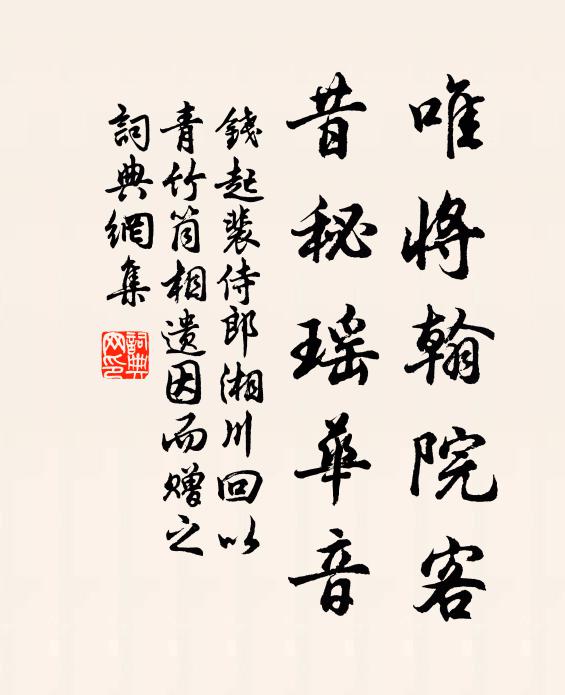 唯將翰院客
昔秘瑶華音
錢起裴侍郎湘川回以
青竹筒相遗因而赠之
詞典網集
詞典
网印